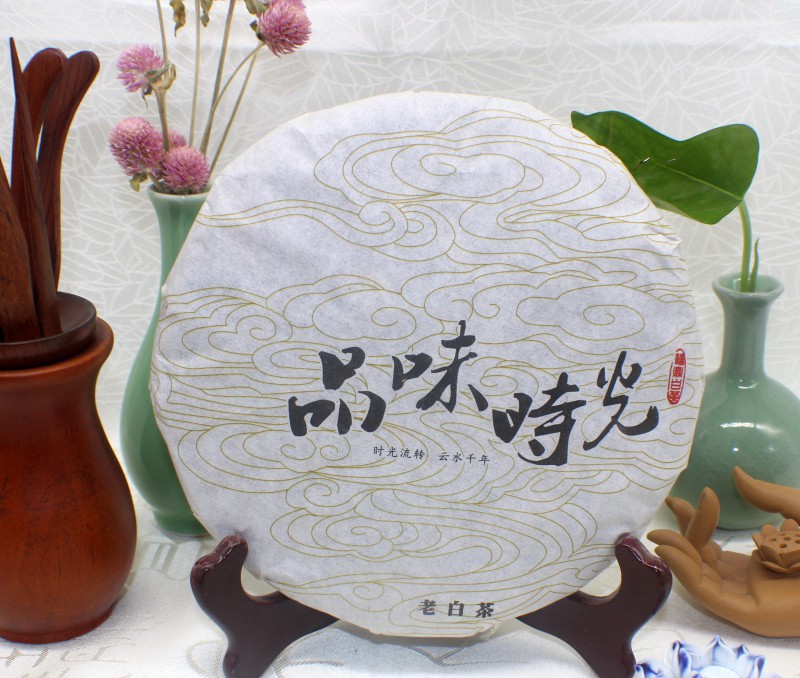 品味時光
时光流转 云水千年
老白茶